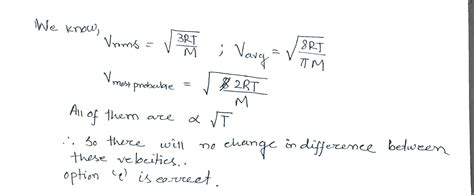 We know,
Vrms = √(3RT/M) ; Vavg = √(8RT/πM)
Vmost probable = √(2RT/M)
All of them are ∝ √T
∴ So there will no change in difference between
these velocities..
option 'c' is correct.